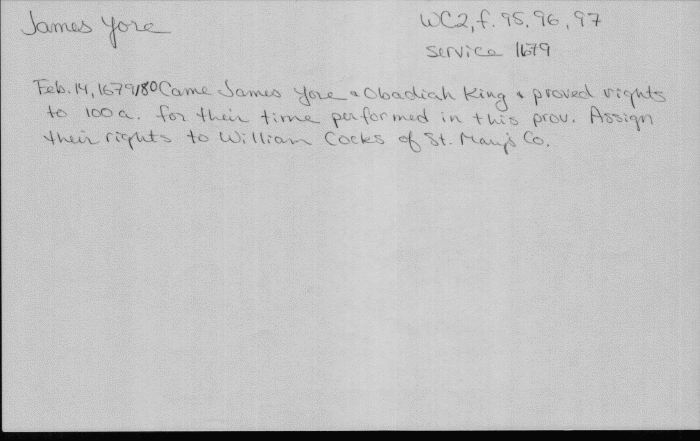 James Yore
WC2, f. 95, 96, 97
service 1679
Feb. 14, 1679/80 Came James Yore & Obadiah King & proved rights
to 100 a. for their time performed in this prov. Assign
their rights to William Cocks of St. Mary's Co.